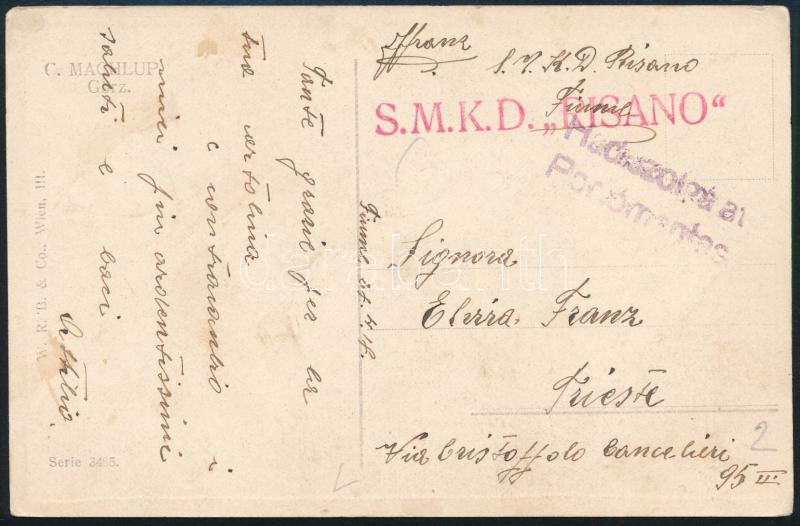 C. MACHLUP,
Görz.
W. R. B. & Co., Wien, III.
Serie 3485.
Tante grazie per la
tua cartolina
e contracambio i
miei più ardentissimi
saluti e baci
Attilio
Fiume
Franz
S. M. K. D. Risano
Fiume
S.M.K.D. „RISANO“
Hadiszolgálat
Portómentes
Signora
Elvira Franz
Trieste
Via Cristoffolo Cancelieri
95 III.
2
darabanth